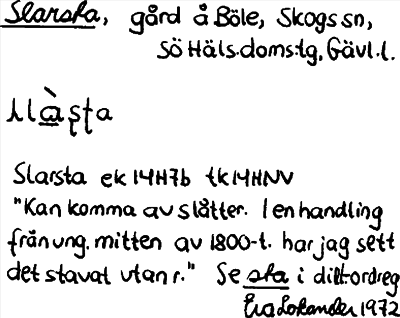 Slarsta, gård å Böle, Skogs sn,
sö Häls.doms:tg, Gävl.l.
Slarsta ek 14H7b tk 14HNV
"Kan komma av slåtter. I en handling
från ung. mitten av 1800-t. har jag sett
det stavat utan r." Se sta i dial-ordreg
Eva Lokander 1972